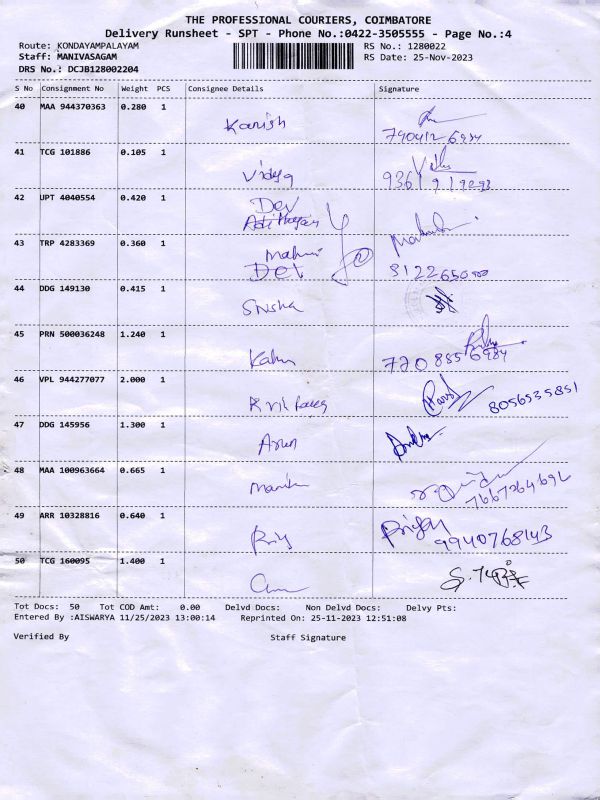 THE PROFESSIONAL COURIERS, COIMBATORE
Delivery Runsheet - SPT - Phone No.:0422-3505555 - Page No.:4
Route: KONDAYAMPALAYAM RS No.: 1280022
Staff: MANIVASAGAM RS Date: 25-Nov-2023
DRS No.: DCJB128002204
S No Consignment No Weight PCS Consignee Details Signature
40 MAA 944370363 0.280 1
Kanish
41 TCG 101886 0.105 1
Vidya
42 UPT 4040554 0.420 1
Dev
43 TRP 4283369 0.360 1
Dev
44 DDG 149130 0.415 1
45 PRN 500036248 1.240 1
46 VPL 944277077 2.000 1
8056535851
47 DDG 145956 1.300 1
Arun
48 MAA 100963664 0.665 1
49 ARR 10328816 0.640 1
Priya
9940768143
50 TCG 160095 1.400 1
Tot Docs: 50 Tot COD Amt: 0.00 Delvd Docs: Non Delvd Docs: Delvy Pts:
Entered By :AISWARYA 11/25/2023 13:00:14 Reprinted On: 25-11-2023 12:51:08
Verified By Staff Signature